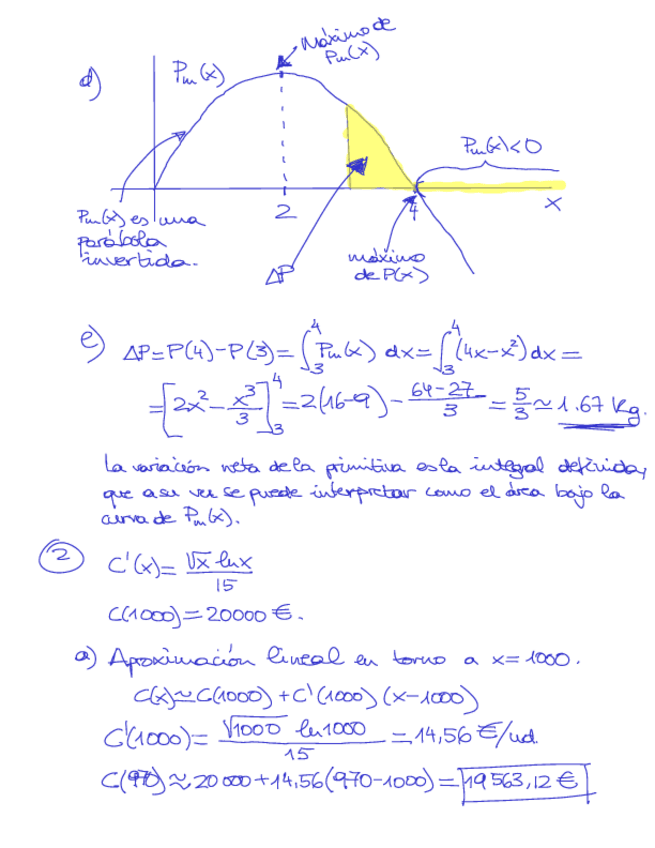 d)
Pm(x)
Máximo de
Pm(x)
Pm(x)<0
2
4
x
Pm(x) es una
parábola
invertida.
ΔP
máximo
de P(x)
e) ΔP=P(4)-P(3)=∫₃⁴ Pm(x) dx=∫₃⁴ (4x-x²)dx=
=[2x²-x³/3]₃⁴=2(16-9)-(64-27)/3=5/3≃1.67 Kg.
La variación neta de la primitiva es la integral definida,
que a su vez se puede interpretar como el área bajo la
curva de Pm(x).
② C'(x)=√x lnx/15
C(1000)=20000€.
a) Aproximación lineal en torno a x=1000.
C(x)≃C(1000)+C'(1000)(x-1000)
C'(1000)=√1000 ln1000/15=14,56€/ud.
C(970)≈20000+14,56(970-1000)=19563,12€